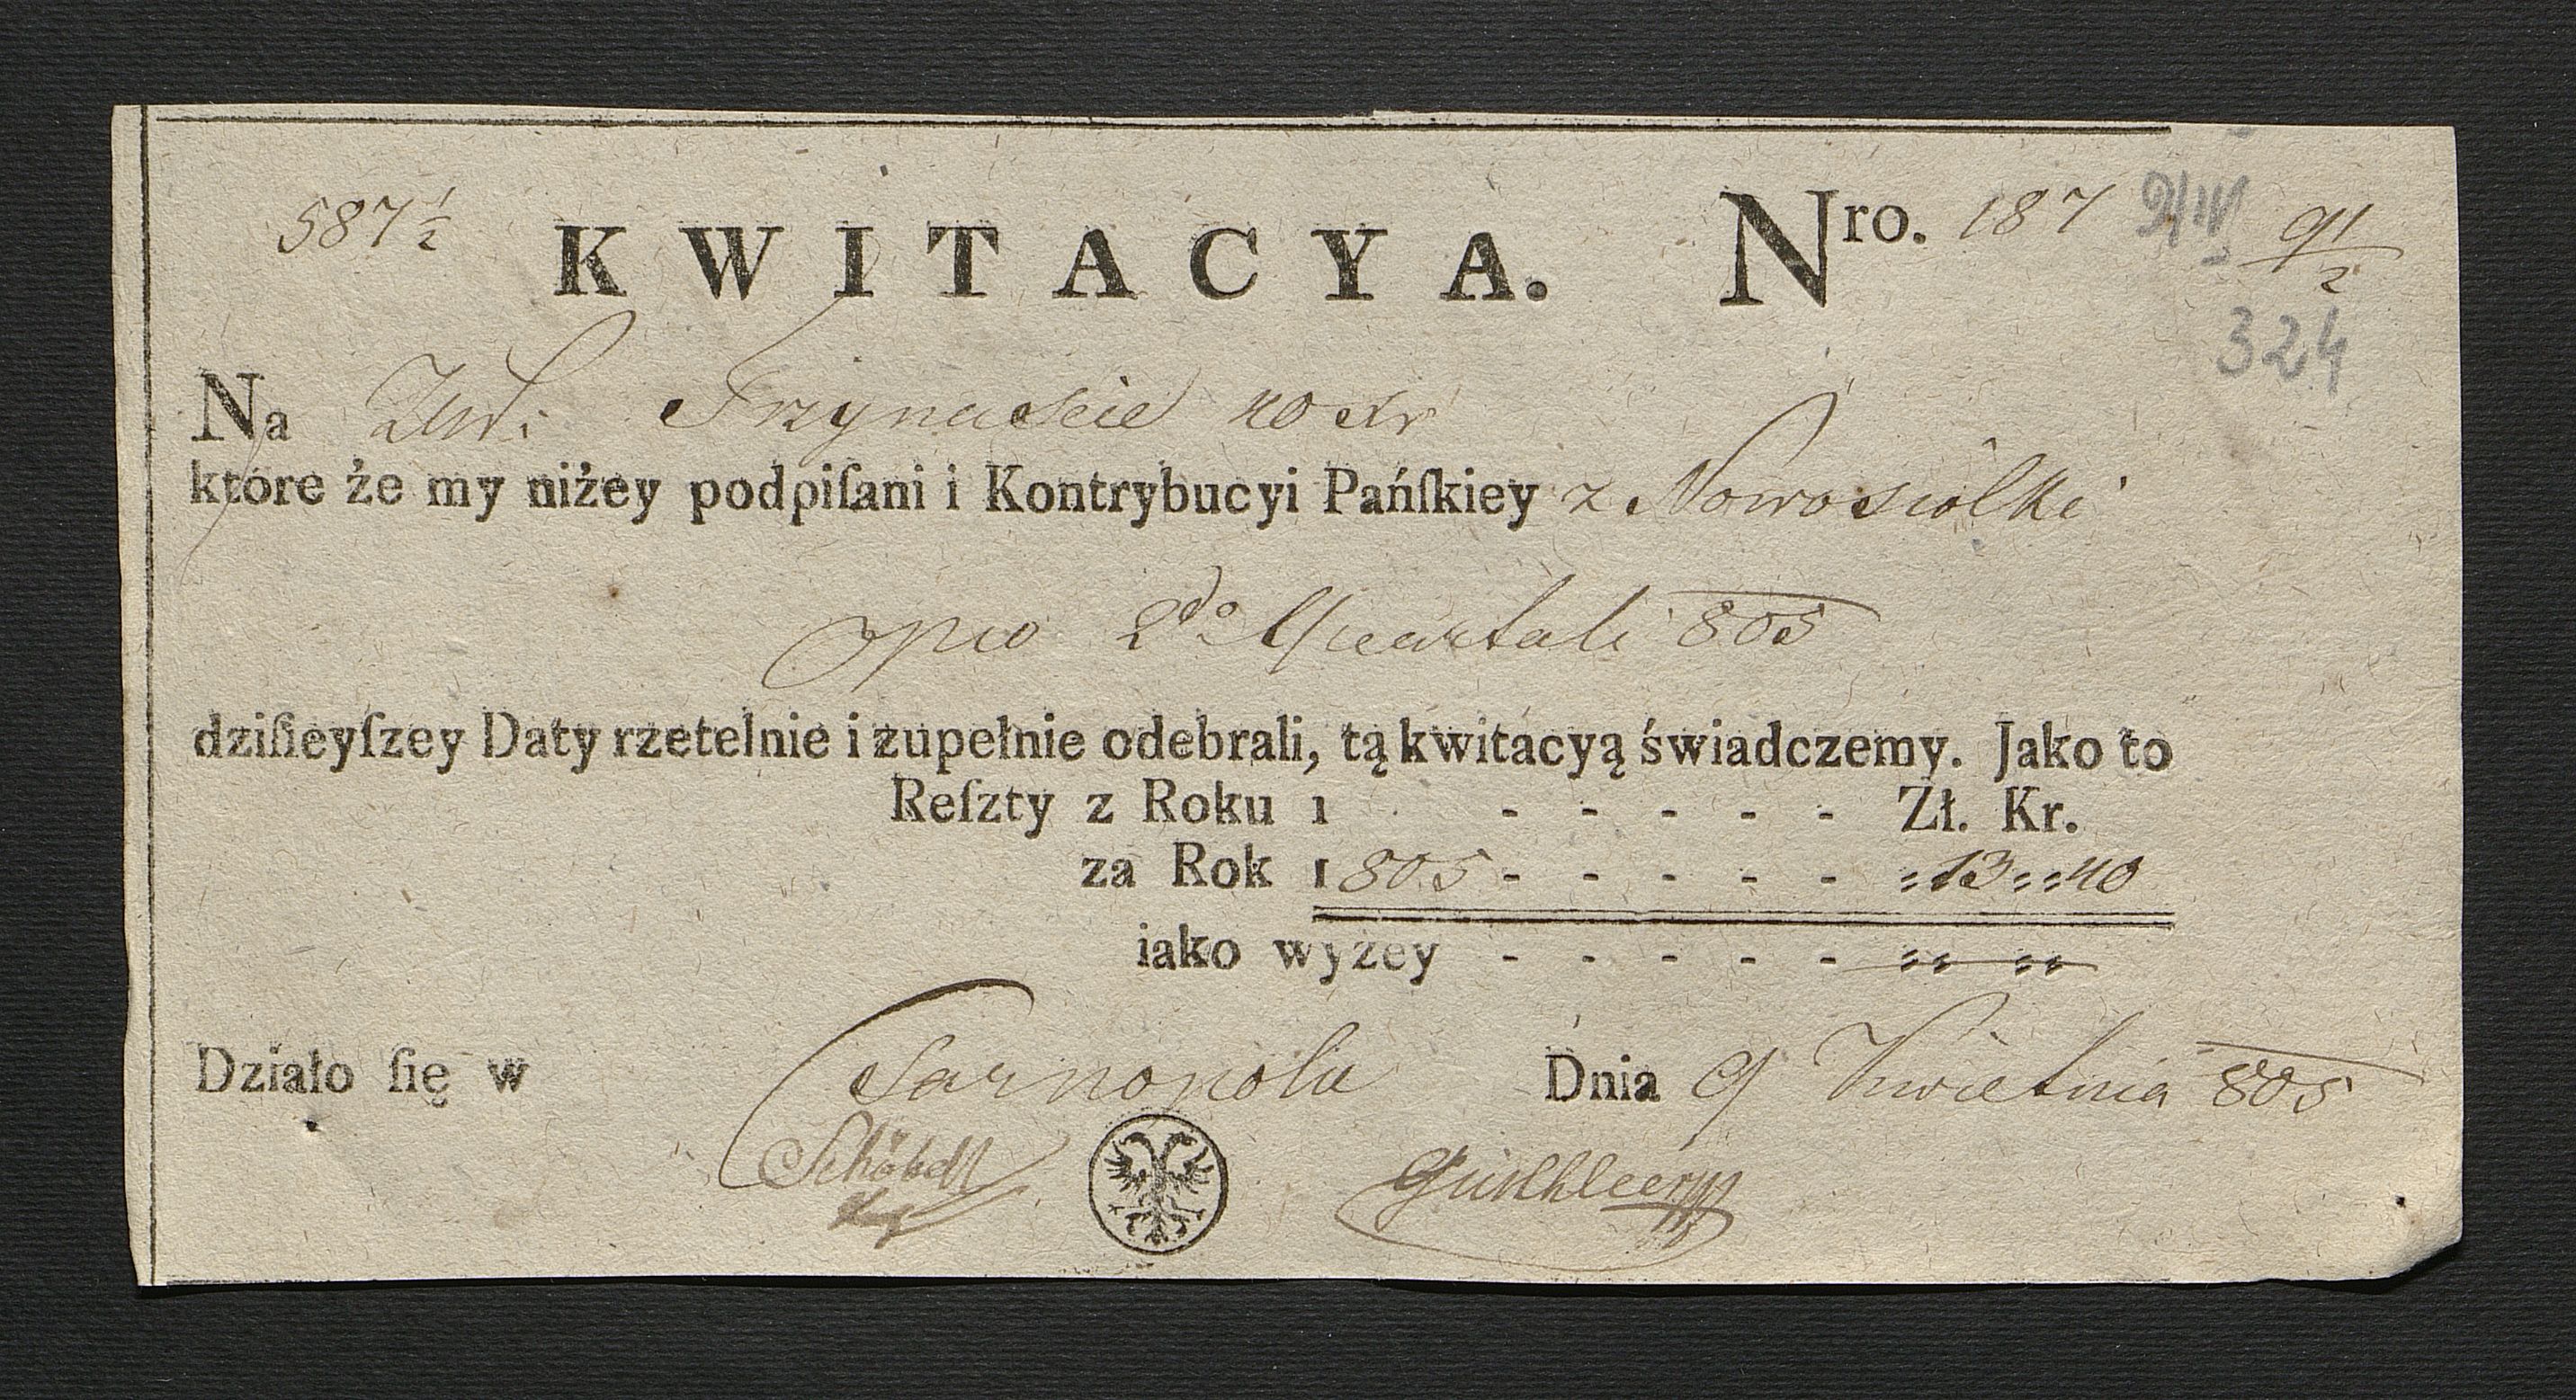 587½ KWITACYA. Nro. 187 9/IV 9/2
324
Na Złr: Trzynascie 40 xr
które że my niżey podpiſani i Kontrybucyi Pańſkiey z Nowosiołki
pro 2do Quartali 805
dziſieyſzey Daty rzetelnie i zupełnie odebrali, tą kwitacyą świadczemy. Jako to
Reſzty z Roku 1 - - - - - Zł. Kr.
za Rok 1805 - - - - - 13 40
iako wyżey - - - - -
Działo ſię w Tarnopolu Dnia 9 Kwietnia 805